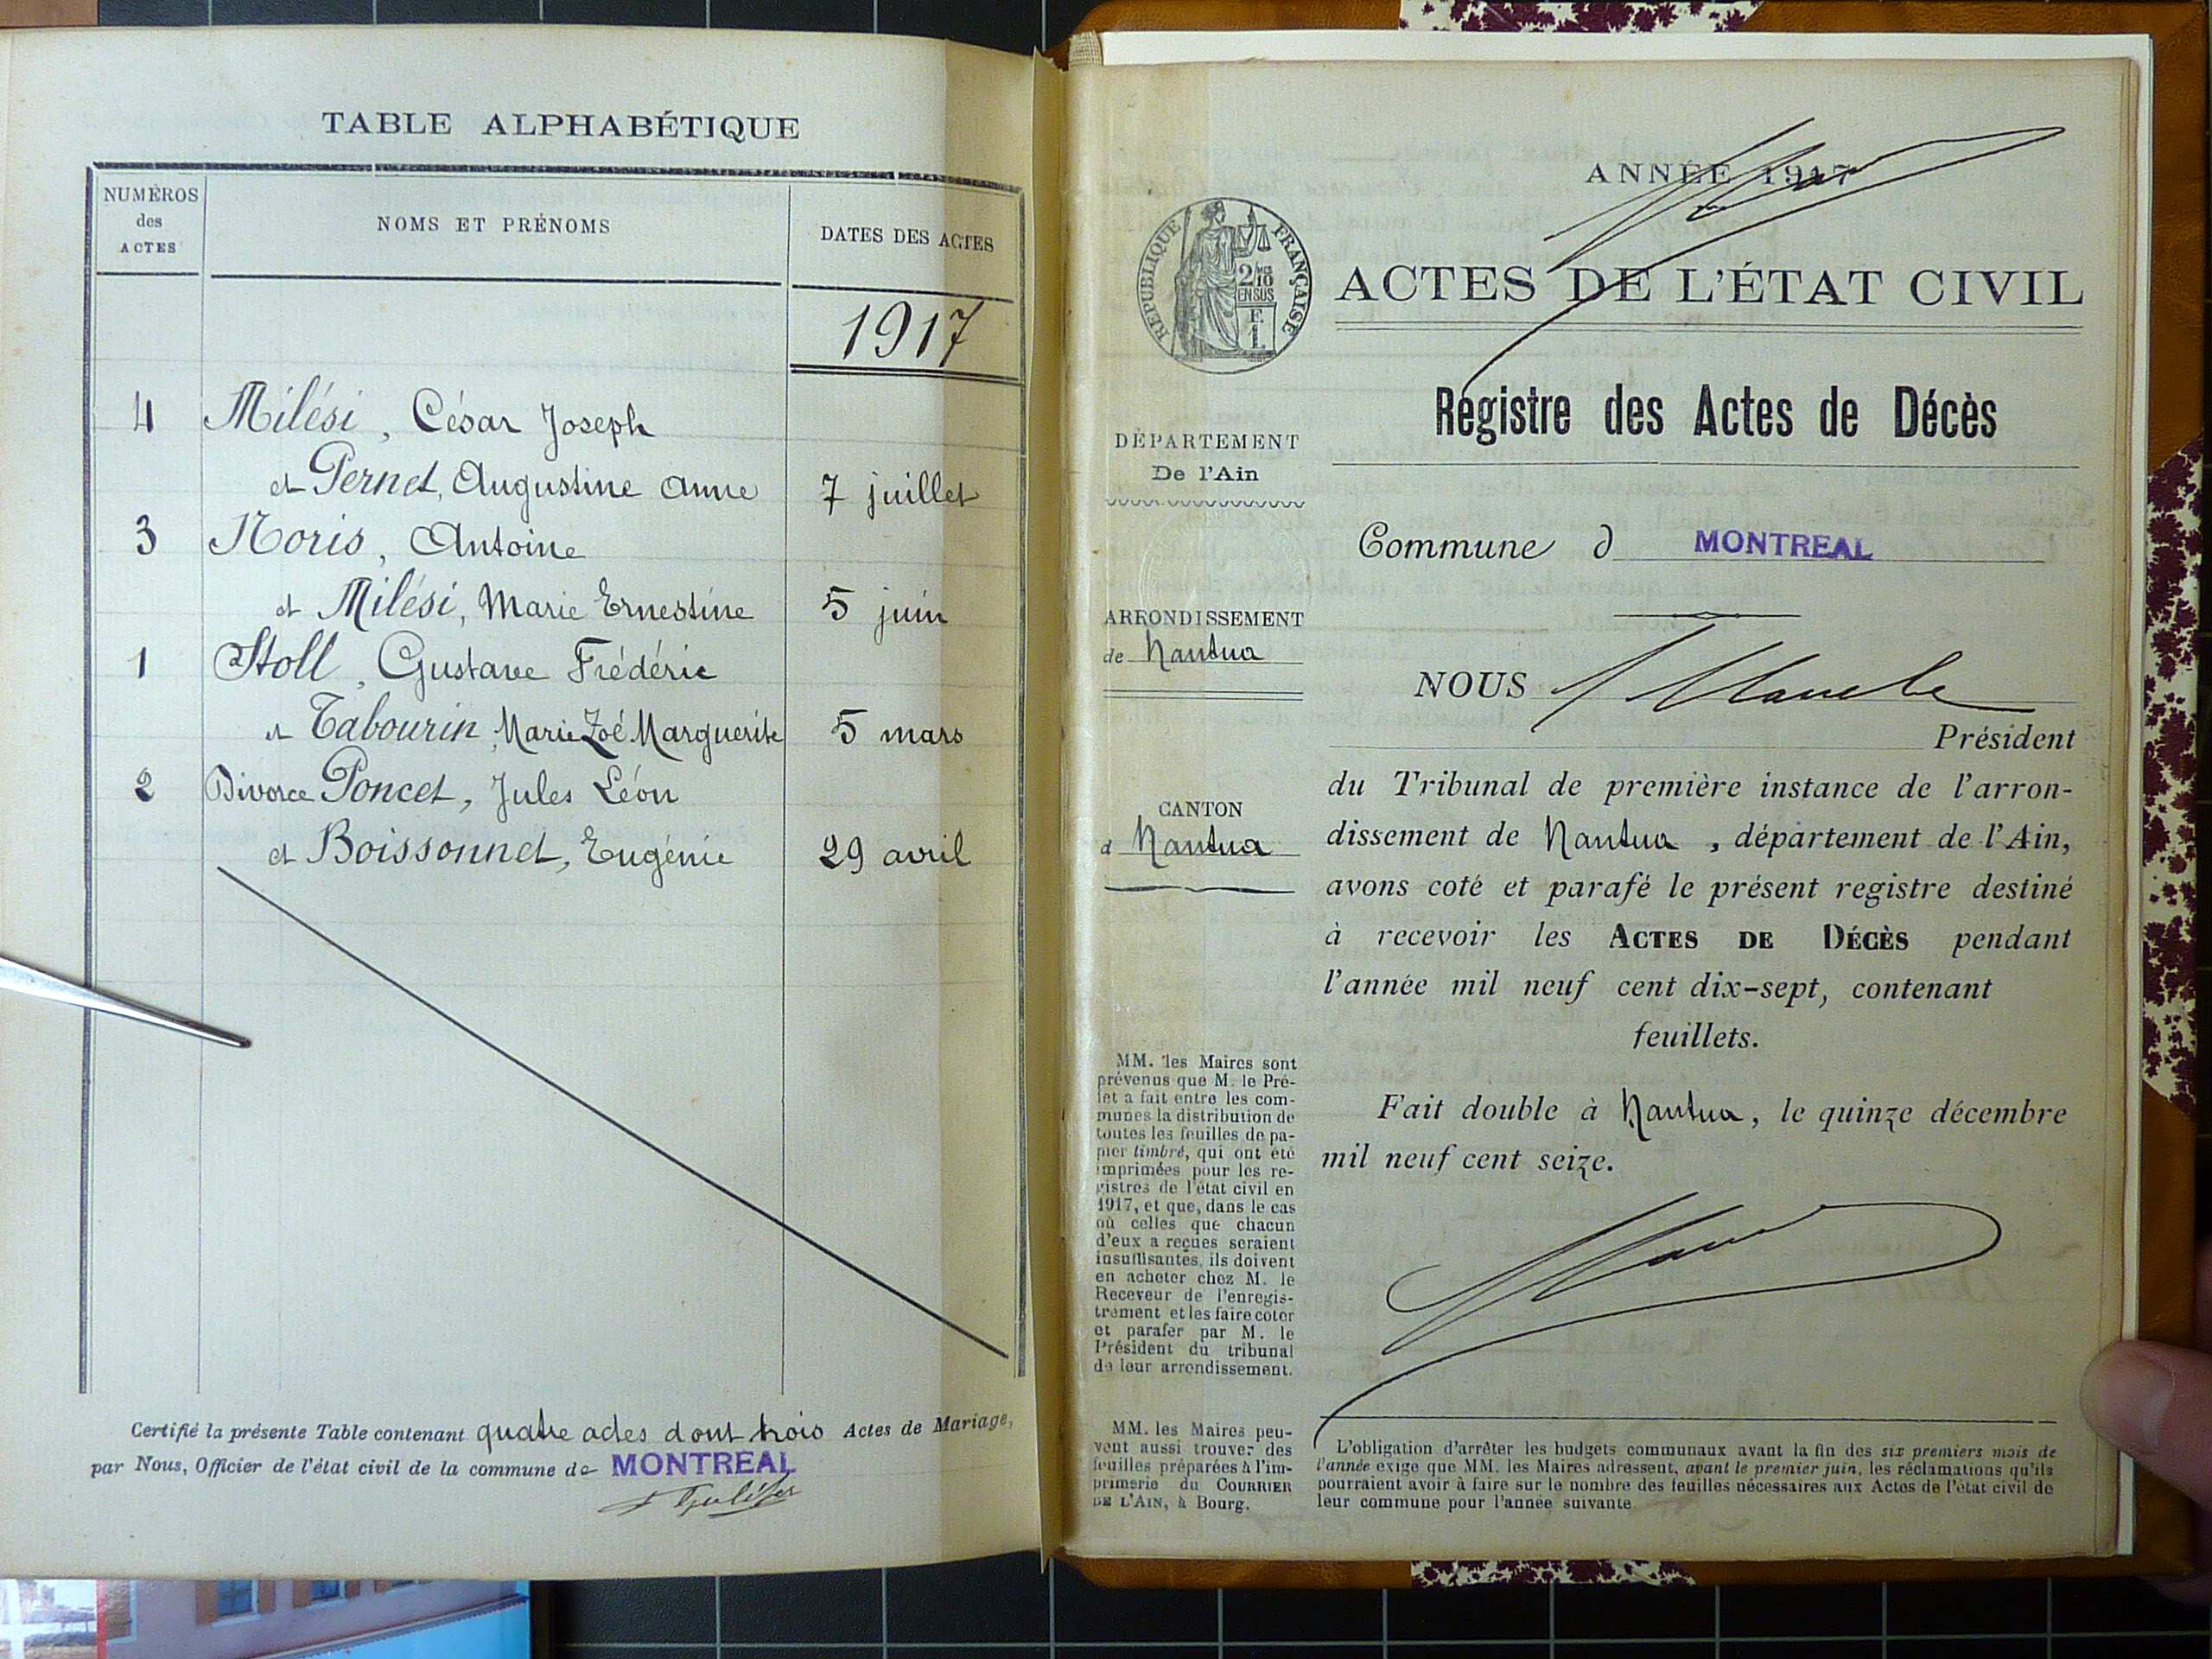 TABLE ALPHABÉTIQUE
NUMÉROS
des
ACTES
NOMS ET PRÉNOMS
DATES DES ACTES
1917
4 Milési, César Joseph
et Pernet, Augustine Anne 7 juillet
3 Noris, Antoine
et Milési, Marie Ernestine 5 juin
1 Stoll, Gustave Frédéric
et Tabourin, Marie Zoé Marguerite 5 mars
2 Divorce Poncet, Jules Léon
et Boissonnet, Eugénie 29 avril
Certifié la présente Table contenant quatre actes dont trois Actes de Mariage,
par Nous, Officier de l'état civil de la commune de MONTREAL
ANNÉE 1917
RÉPUBLIQUE FRANÇAISE
2/10
EN SUS
F.
1
ACTES DE L'ÉTAT CIVIL
Registre des Actes de Décès
DÉPARTEMENT
De l'Ain
Commune d MONTREAL
ARRONDISSEMENT
de Nantua
NOUS
Président
du Tribunal de première instance de l'arron-
dissement de Nantua, département de l'Ain,
avons coté et parafé le présent registre destiné
à recevoir les ACTES DE DÉCÈS pendant
l'année mil neuf cent dix-sept, contenant
feuillets.
Fait double à Nantua, le quinze décembre
mil neuf cent seize.
CANTON
d Nantua
MM. les Maires sont
prévenus que M. le Pré-
fet a fait entre les com-
munes la distribution de
toutes les feuilles de pa-
pier timbré, qui ont été
imprimées pour les re-
gistres de l'état civil en
1917, et que, dans le cas
où celles que chacun
d'eux a reçues seraient
insuffisantes, ils doivent
en acheter chez M. le
Receveur de l'enregis-
trement et les faire coter
et parafer par M. le
Président du tribunal
de leur arrondissement.
MM. les Maires peu-
vent aussi trouver des
feuilles préparées à l'im-
primerie du COURRIER
DE L'AIN, à Bourg.
L'obligation d'arrêter les budgets communaux avant la fin des six premiers mois de
l'année exige que MM. les Maires adressent, avant le premier juin, les réclamations qu'ils
pourraient avoir à faire sur le nombre des feuilles nécessaires aux Actes de l'état civil de
leur commune pour l'année suivante.